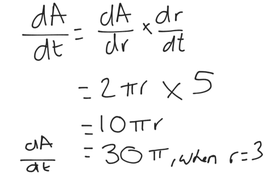 dA/dt = dA/dr × dr/dt
= 2πr × 5
= 10πr
dA/dt = 30π, when r=3